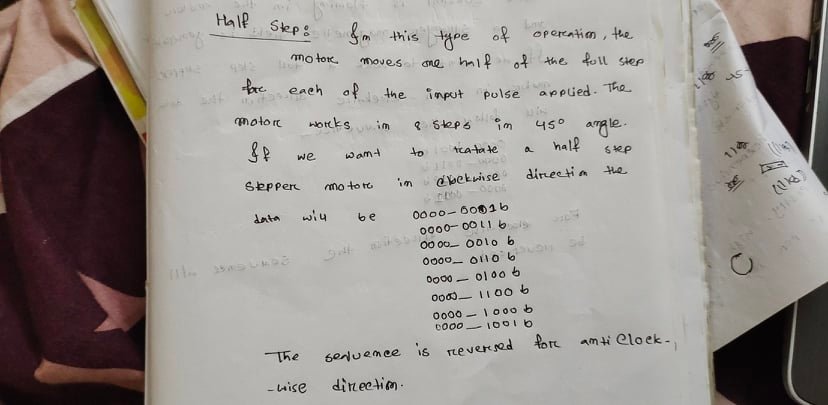 Half Step: In this type of operation, the
motor moves one half of the full step
for each of the input pulse applied. The
motor works in 8 steps in 45° angle.
If we want to roatate a half step
stepper motors in clockwise direction the
data will be 0000-0001b
0000-0011b
0000-0010 b
0000-0110 b
0000-0100 b
0000-1100 b
0000-1000 b
0000-1001 b
The sequence is reversed for anti clock-
-wise direction.